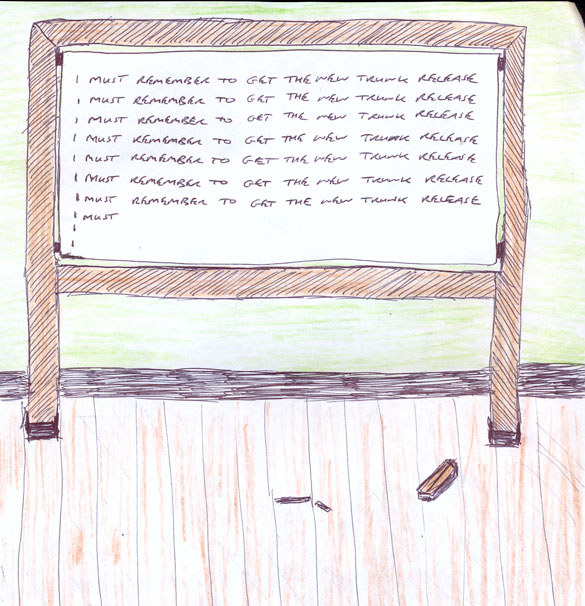 I MUST REMEMBER TO GET THE NEW TRUNK RELEASE
I MUST REMEMBER TO GET THE NEW TRUNK RELEASE
I MUST REMEMBER TO GET THE NEW TRUNK RELEASE
I MUST REMEMBER TO GET THE NEW TRUNK RELEASE
I MUST REMEMBER TO GET THE NEW TRUNK RELEASE
I MUST REMEMBER TO GET THE NEW TRUNK RELEASE
I MUST REMEMBER TO GET THE NEW TRUNK RELEASE
I MUST
I
I